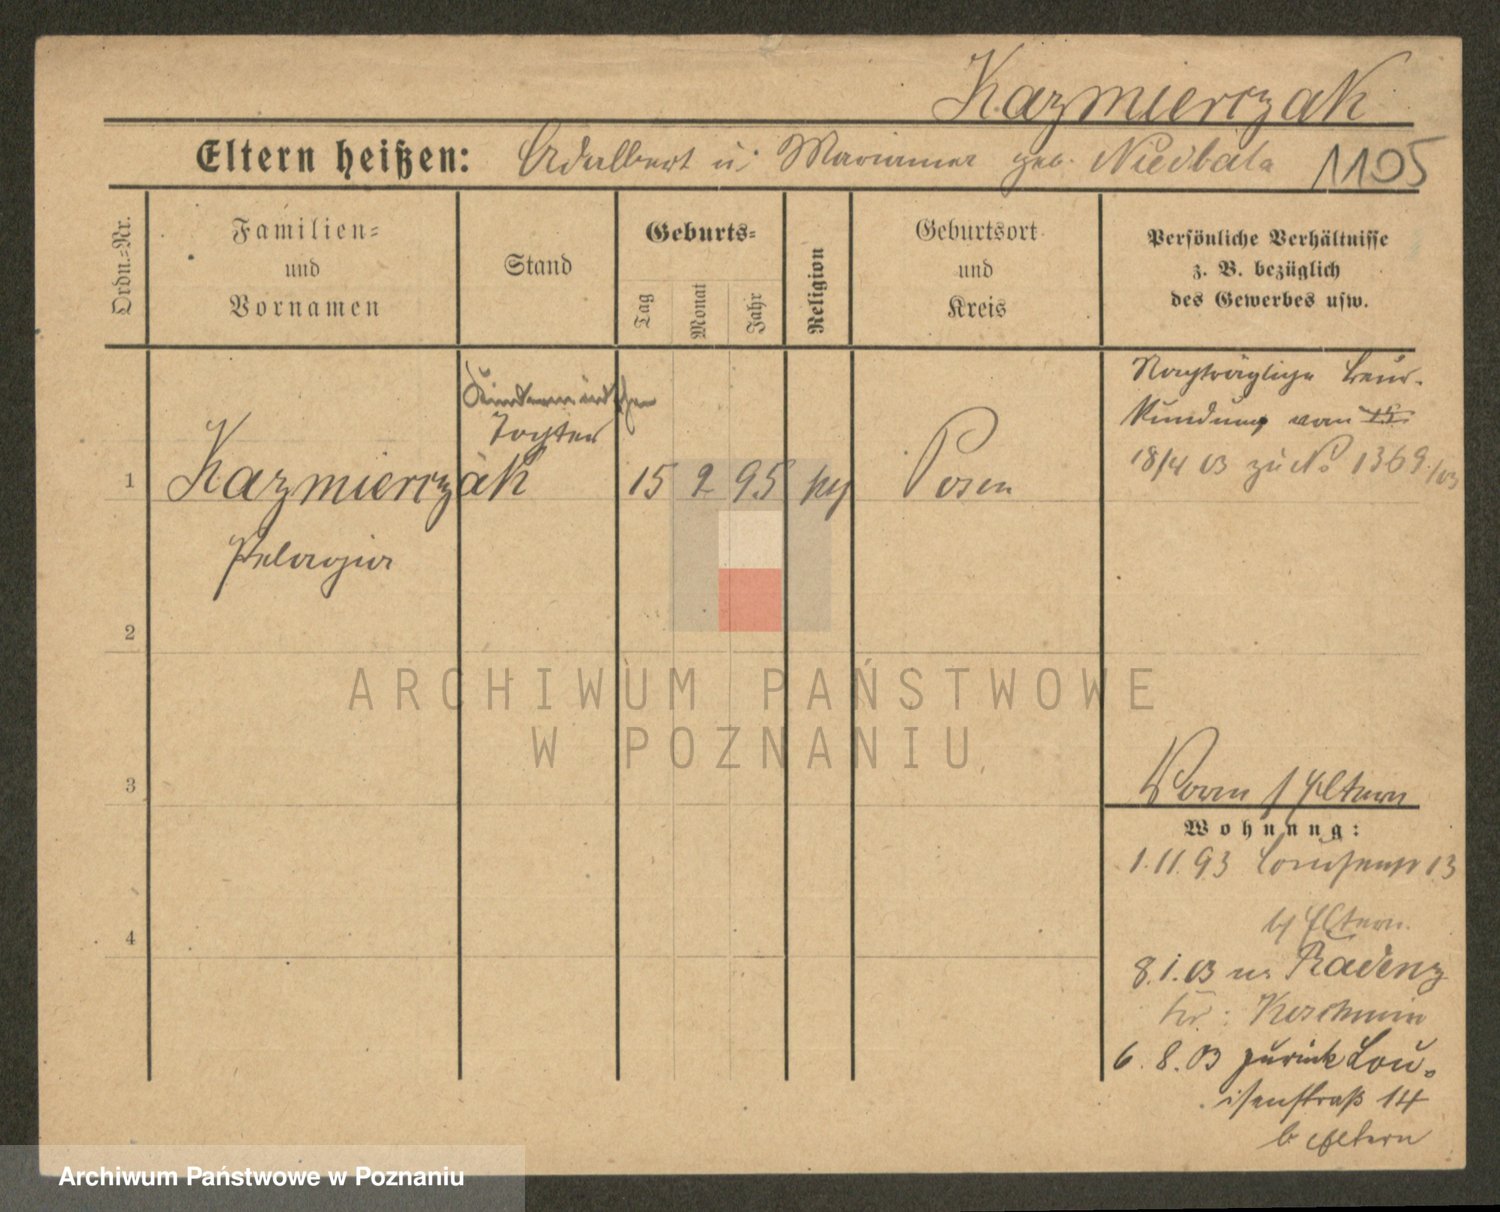 Kazmierczak
Eltern heißen: Adalbert u. Marianna geb. Niedbala 1195
Ordn.-Nr.
Familien-
und
Vornamen
Stand
Geburts-
Tag
Monat
Jahr
Religion
Geburtsort
und
Kreis
Persönliche Verhältnisse
z. B. bezüglich
des Gewerbes usw.
Nachträgliche Beur-
kundung vom
18/4 03 zu No 1369/03
Tochter
1 Kazmierczak 15 2 95 Posen
Pelagia
2
3
4
Eltern
Wohnung:
1.11.93 13
b/ Eltern
8.1.03 n. Radenz
Kr: Koschmin
6.8.03 zurück Lou-
isenstraß 14
b Eltern
ARCHIWUM PAŃSTWOWE
W POZNANIU
Archiwum Państwowe w Poznaniu